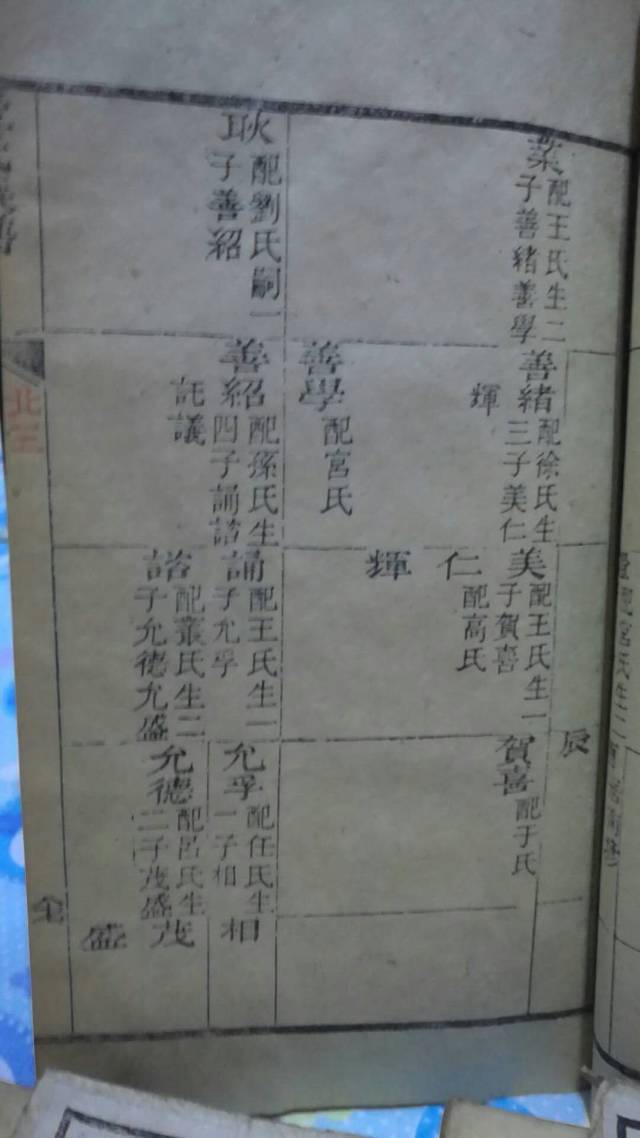 葉
配王氏生二
子善緒善學
耿
配劉氏嗣一
子善紹
善緒
配徐氏生
三子美仁
輝
善學
配宮氏
善紹
配孫氏生
四子誦諮
託議
美
配王氏生一
子賀喜
仁
配高氏
輝
誦
配王氏生一
子允孚
諮
配叢氏生二
子允德允盛
辰
賀喜
配于氏
允孚
配任氏生
一子相
允德
配呂氏生
二子茂盛
相
茂
盛
北三
全
配宮氏生二